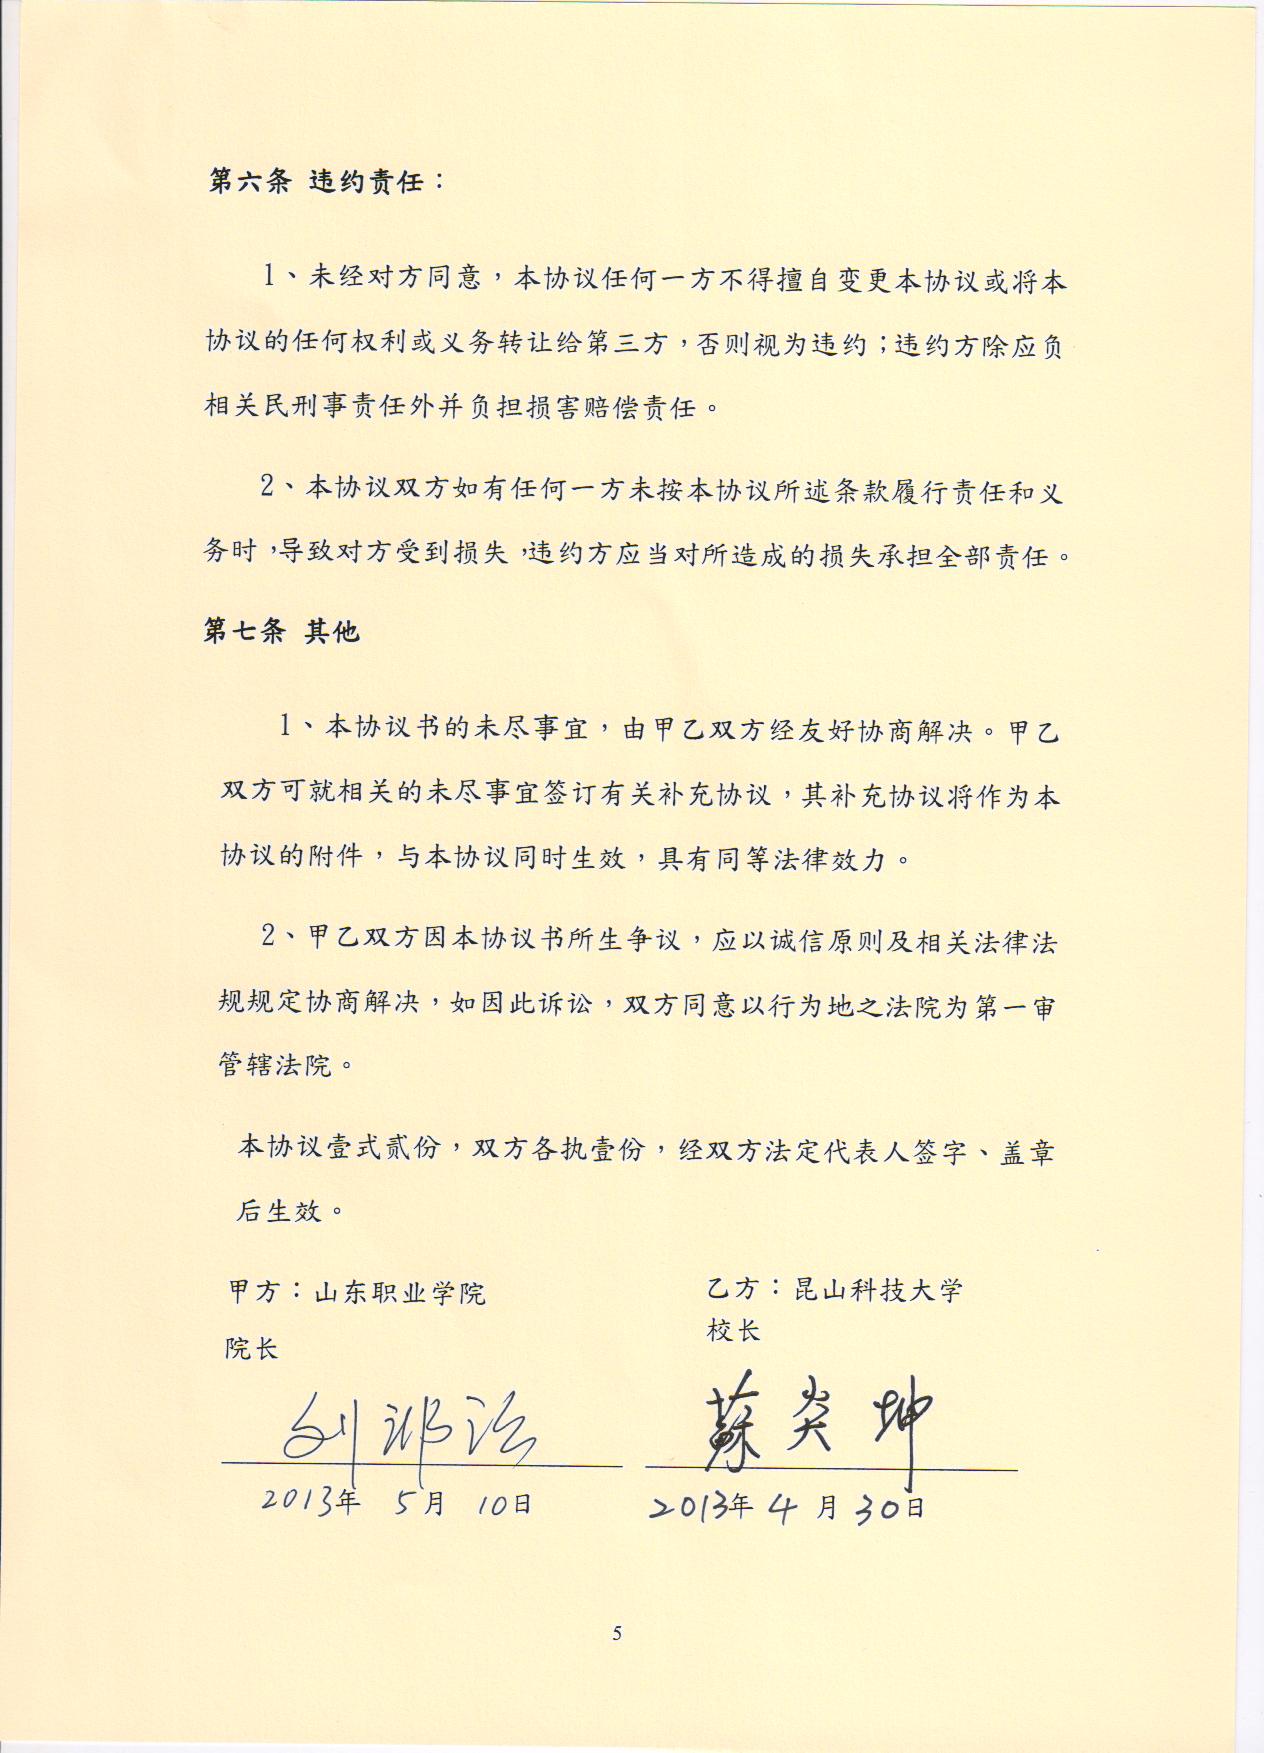 第六条 违约责任：
1、未经对方同意，本协议任何一方不得擅自变更本协议或将本
协议的任何权利或义务转让给第三方，否则视为违约；违约方除应负
相关民刑事责任外并负担损害赔偿责任。
2、本协议双方如有任何一方未按本协议所述条款履行责任和义
务时，导致对方受到损失，违约方应当对所造成的损失承担全部责任。
第七条 其他
1、本协议书的未尽事宜，由甲乙双方经友好协商解决。甲乙
双方可就相关的未尽事宜签订有关补充协议，其补充协议将作为本
协议的附件，与本协议同时生效，具有同等法律效力。
2、甲乙双方因本协议书所生争议，应以诚信原则及相关法律法
规规定协商解决，如因此诉讼，双方同意以行为地之法院为第一审
管辖法院。
本协议壹式贰份，双方各执壹份，经双方法定代表人签字、盖章
后生效。
甲方：山东职业学院
院长
刘
2013年 5月 10日
乙方：昆山科技大学
校长
蘇炎坤
2013年 4月 30日
5